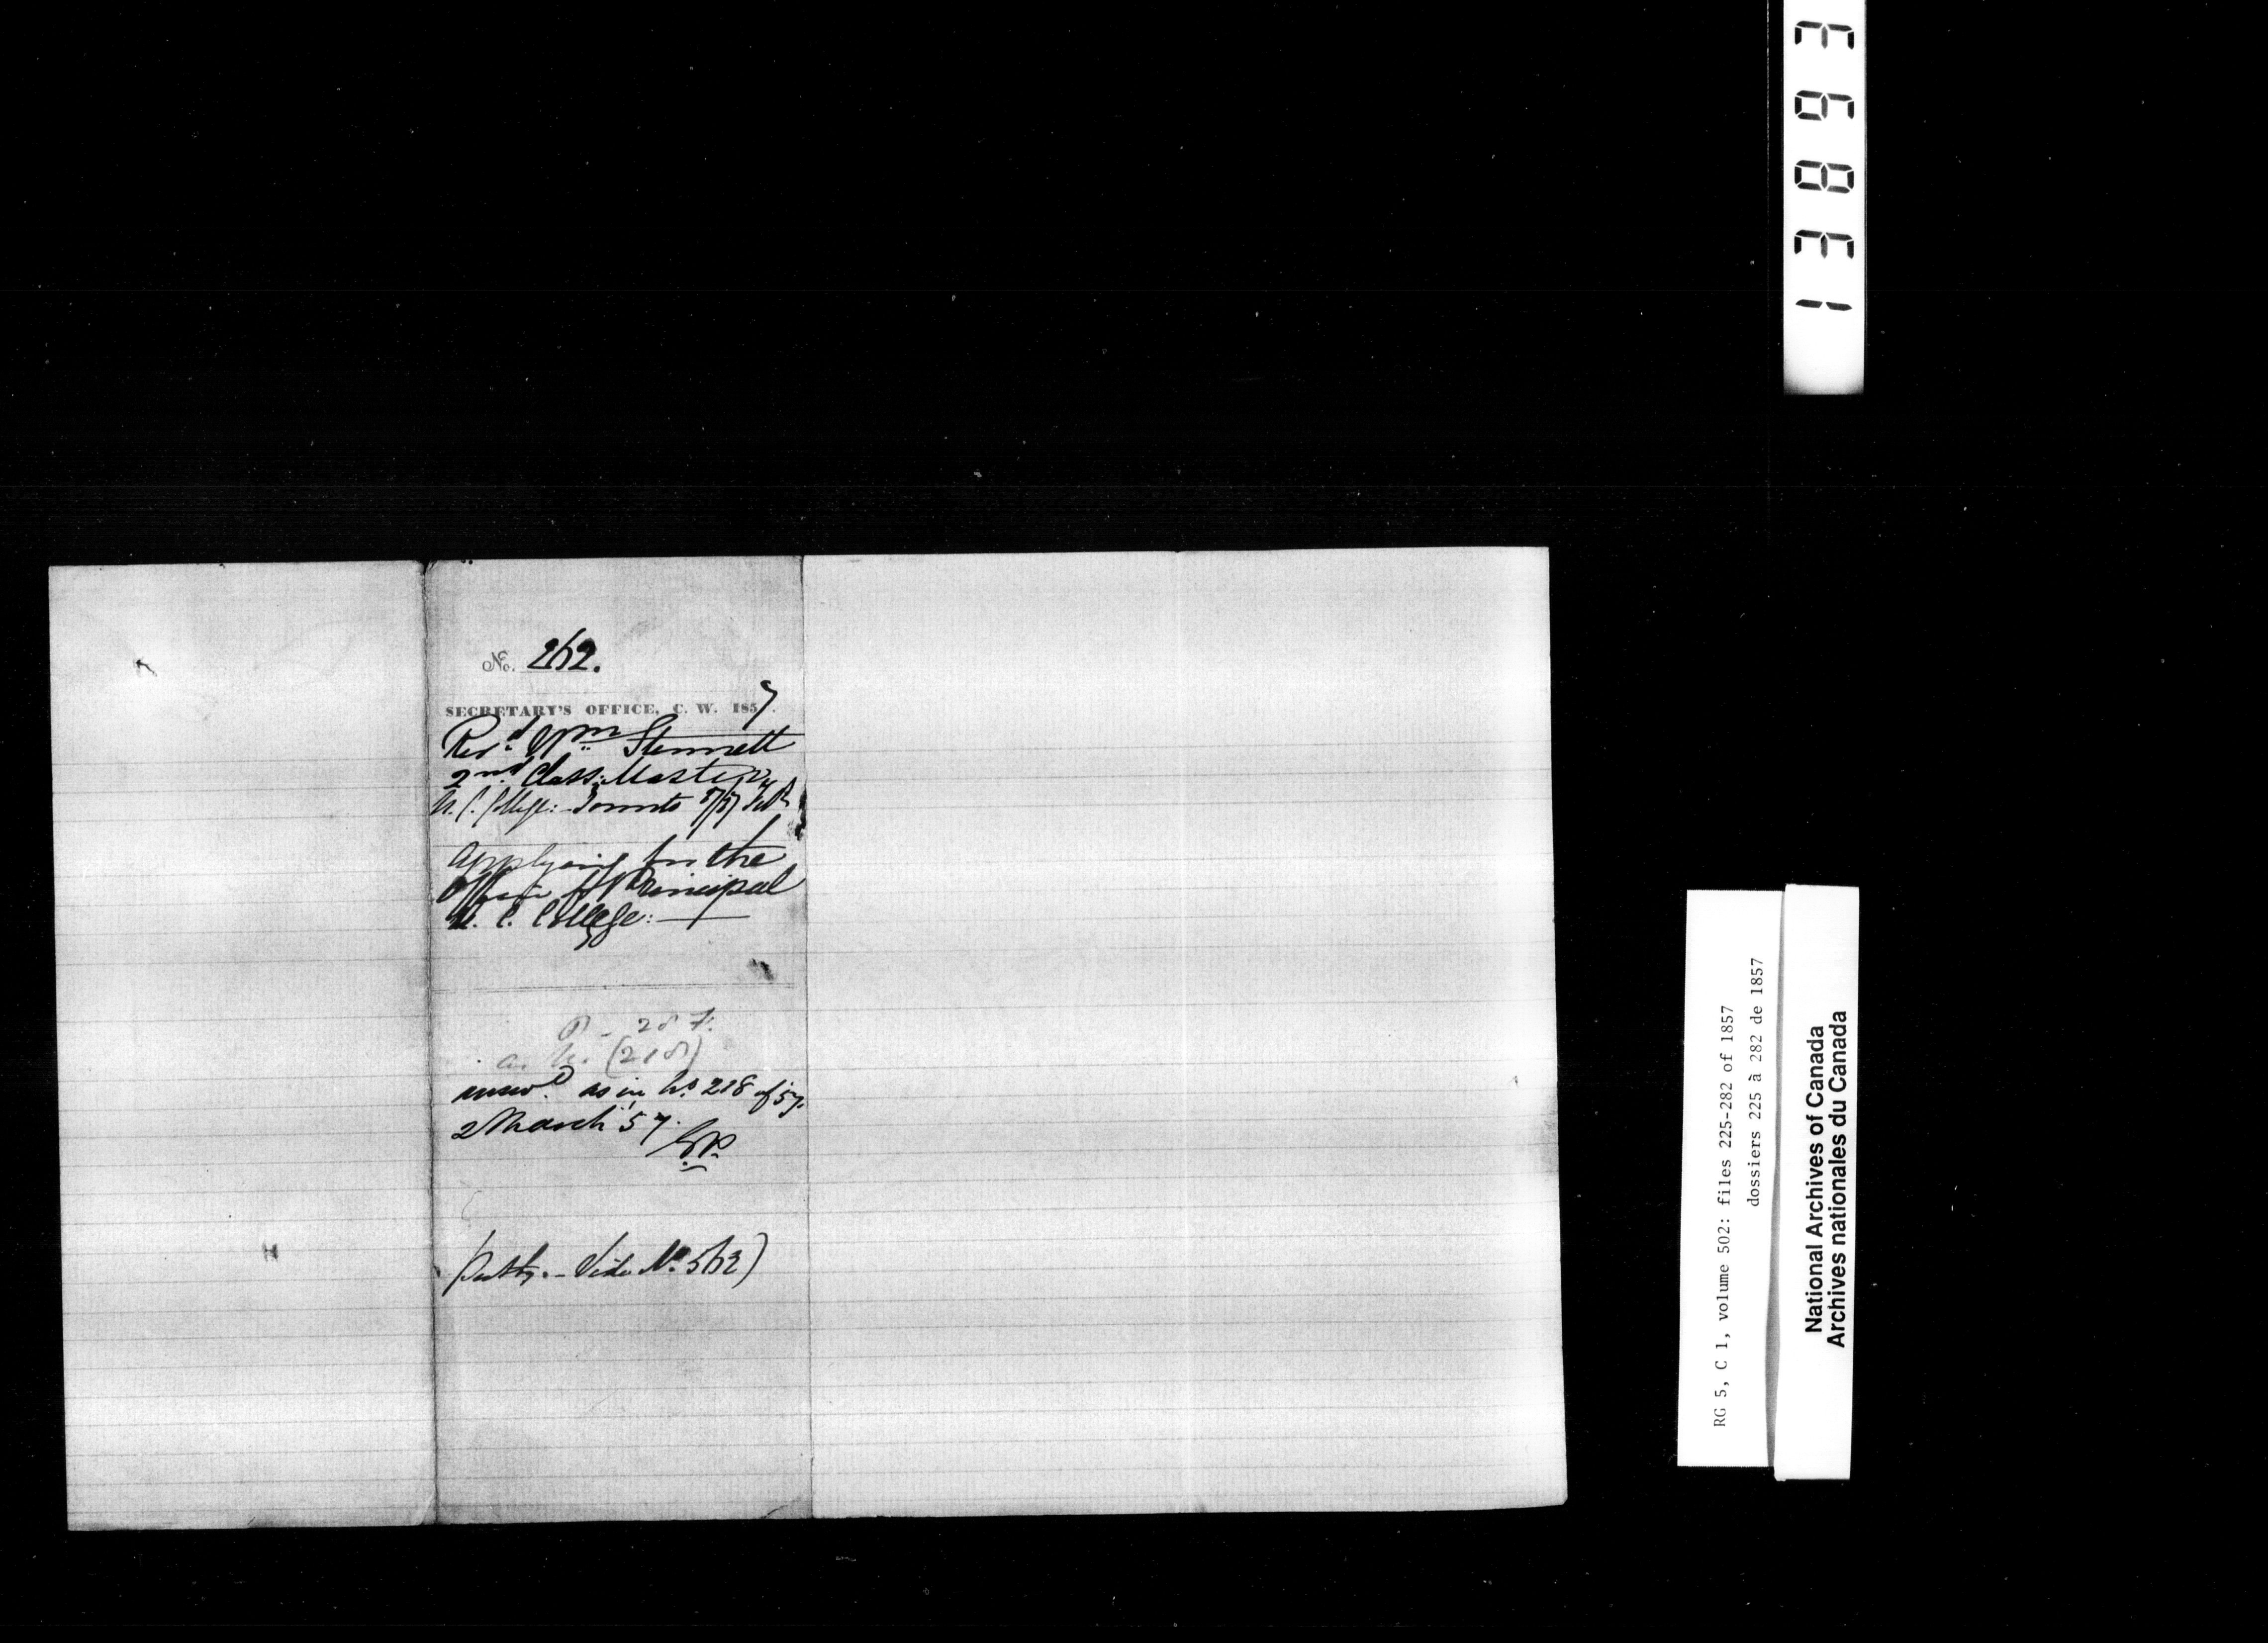 No. 262.
SECRETARY'S OFFICE, C. W. 1857.
Revd. Wm. Stennett
2nd. Class: Master
U. C. College: Toronto
Applying for the
Office of Principal
U. C. College: —
P - 287.
a. n. (218)
answd. as in No. 218 of 57.
2 March '57.
(Vide No. 562)
13893
RG 5, C 1, volume 502: files 225-282 of 1857
dossiers 225 à 282 de 1857
National Archives of Canada
Archives nationales du Canada